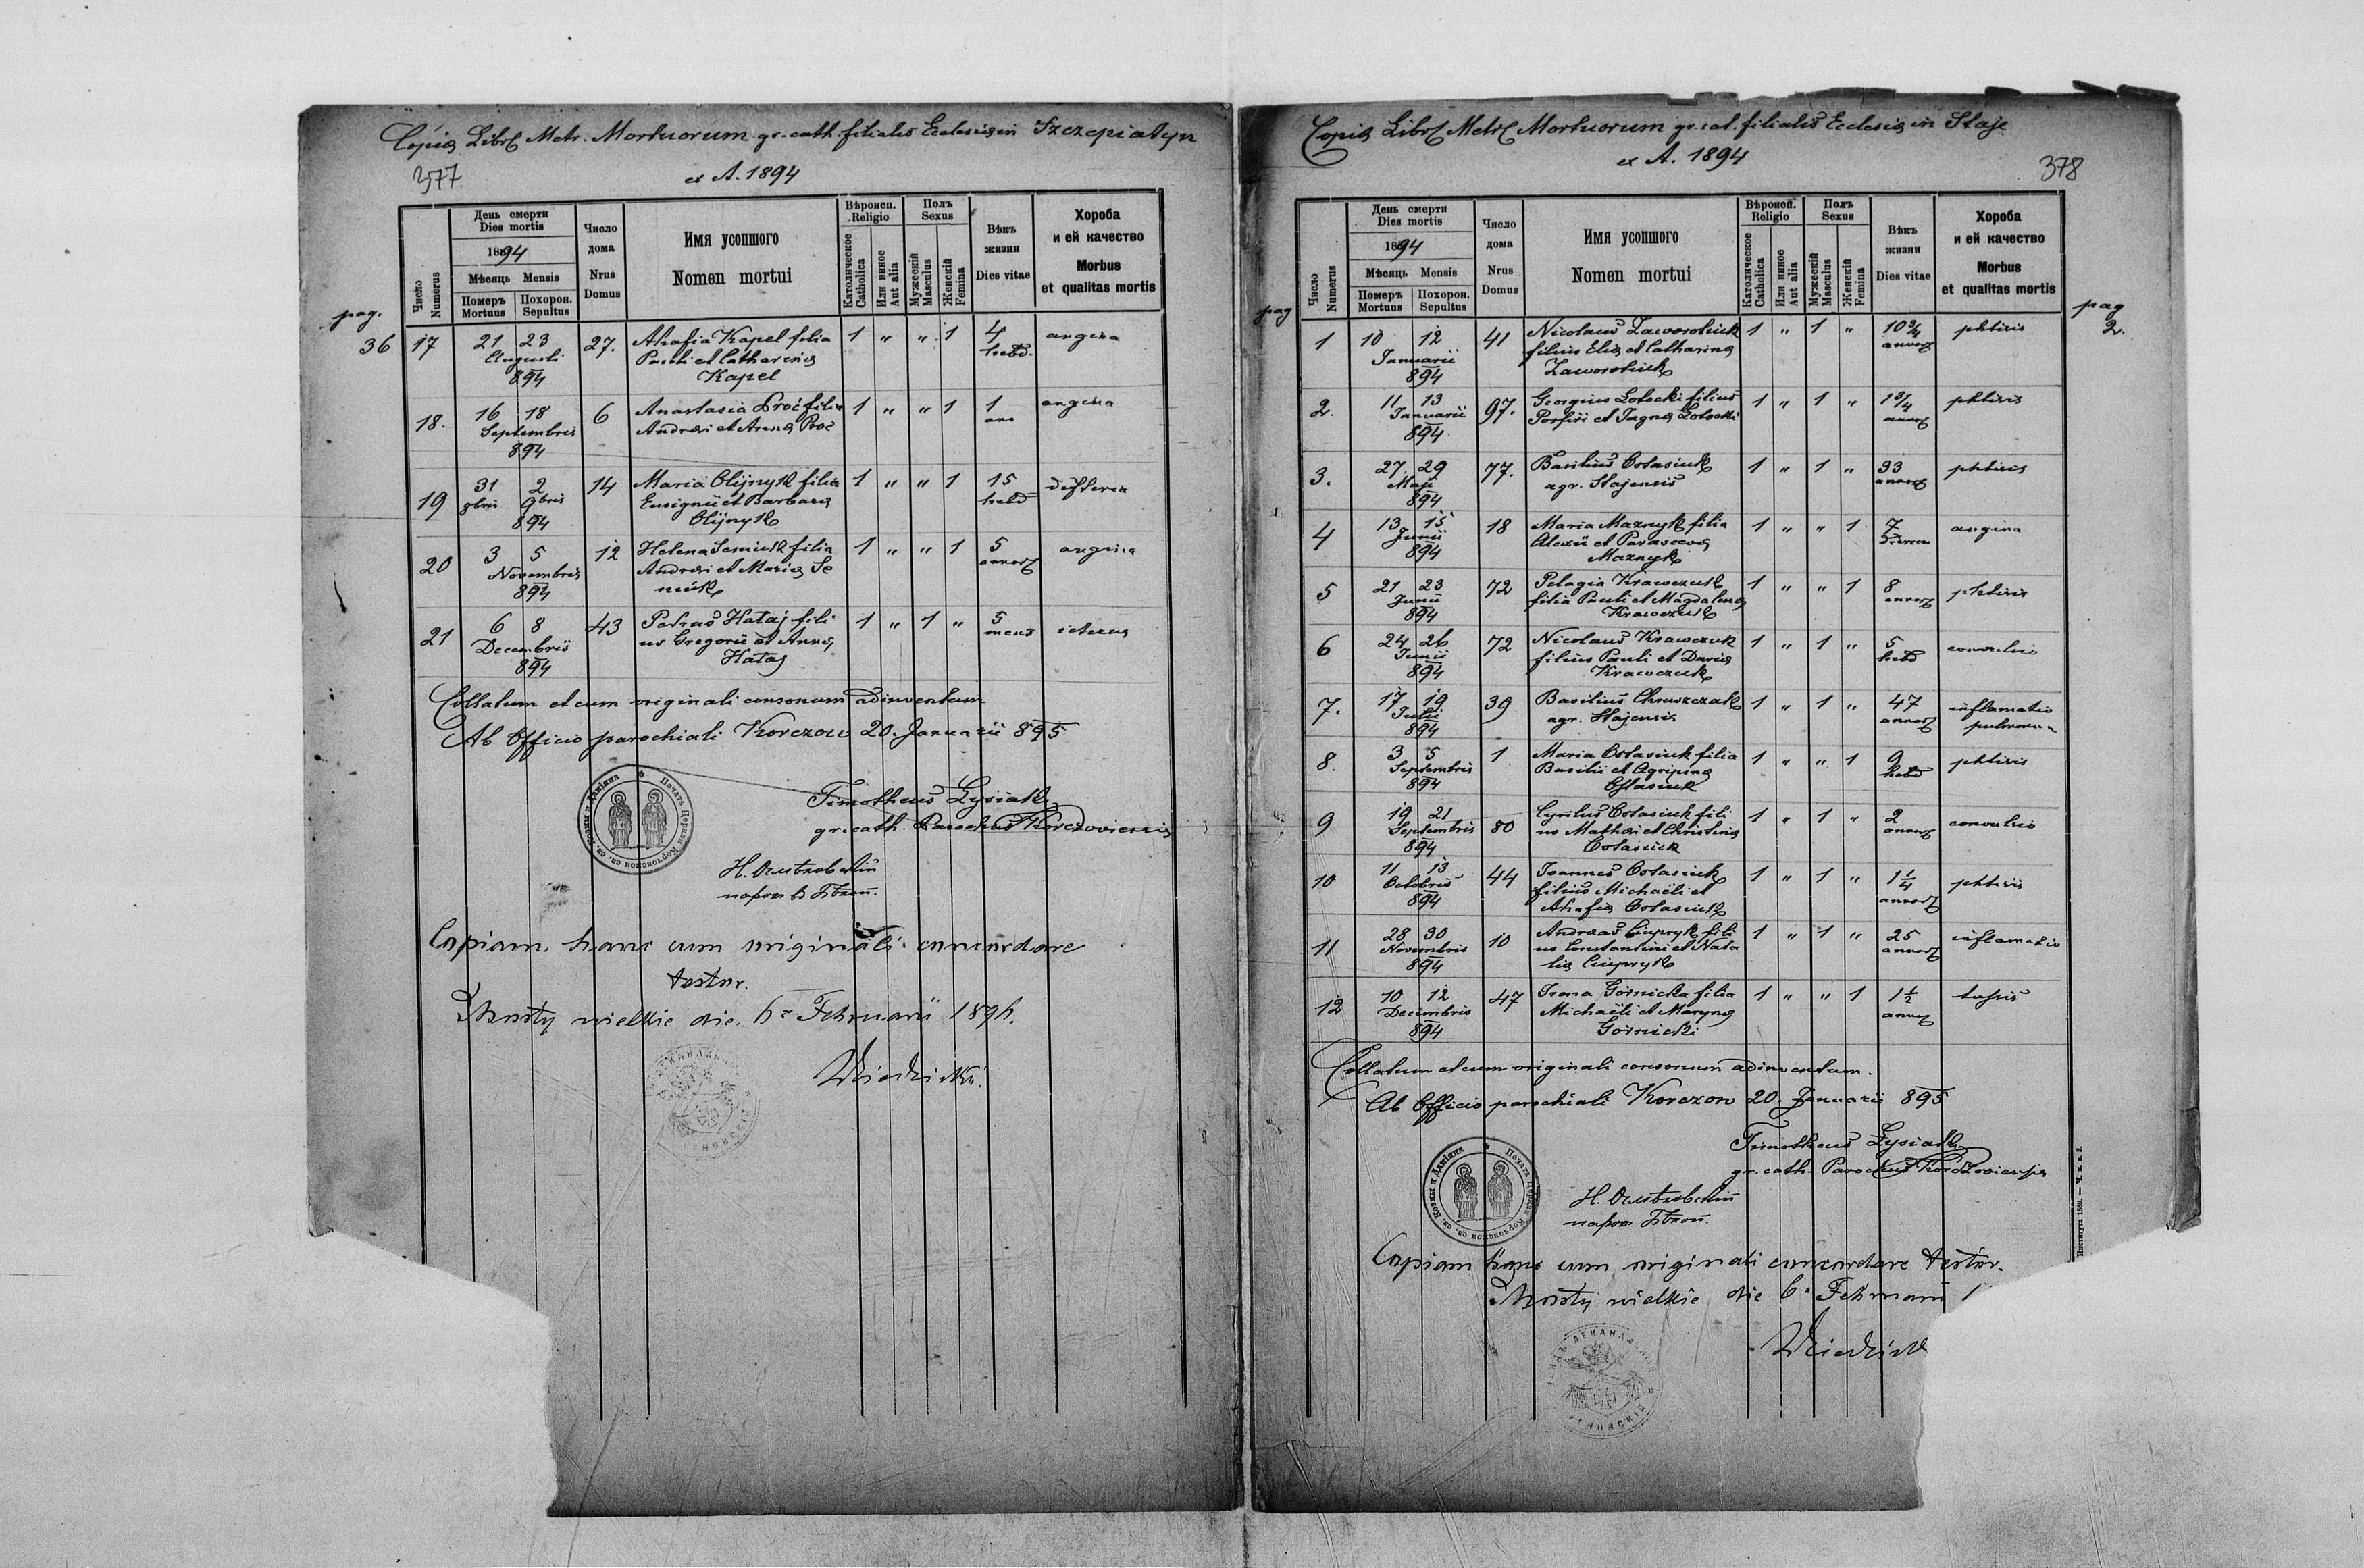 Copia Libri Metr. Mortuorum gr. cath. filialis Ecclesiæ in Szczepiatyn
377
ex A. 1894
Число
Numerus
День смерти
Dies mortis
1894
Мѣсяць Mensis
Померъ
Mortuus
Похорон.
Sepultus
Число
дома
Nrus
Domus
Имя усопшого
Nomen mortui
Вѣроисп.
Religio
Католическое
Catholica
Или инное
Aut alia
Полъ
Sexus
Мужескій
Masculus
Женскій
Femina
Вѣкъ
жизни
Dies vitae
Хороба
и ей качество
Morbus
et qualitas mortis
pag.
36 17 21 23 27. Ahafia Kapel filia 1 " " 1 4 angina
Augusti Pauli et Catharinæ hebd.
894 Kapel
18. 16 18 6 Anastasia Proć filia 1 " " 1 1 angina
Septembris Andreæ et Annæ Proć ano
894
19 31 2 14 Maria Olijnyk filia 1 " " 1 15 difteria
8bris 9bris et Barbaræ hebd
894 Olijnyk
20 3 5 12 Helena Semiuk filia 1 " " 1 5 angina
Novembris Andreæ et Mariæ Se annor
894 miuk
21 6 8 43 Petrus Hałaj fili 1 " 1 " 5 icterus
Decembris us Gregorii et Annæ mens
894 Hałaj
Collatum et cum originali consonum adinventum
Ab Officio parochiali Korczow 20. Januarii 895
Timotheus Łysiak
gr. cath. Parochus Korczoviensis
Печать Церкви Корчовской св. св. Козмы и Даміяна
Copiam hanc cum originali concordare
testor.
Mosty wielkie die 6a Februarii 1896.
Copia Libri Metr Mortuorum gr. cat. filialis Ecclesiæ in Staje
ex A. 1894
378
Число
Numerus
День смерти
Dies mortis
1894
Мѣсяць Mensis
Померъ
Mortuus
Похорон.
Sepultus
Число
дома
Nrus
Domus
Имя усопшого
Nomen mortui
Вѣроисп.
Religio
Католическое
Catholica
Или инное
Aut alia
Полъ
Sexus
Мужескій
Masculus
Женскій
Femina
Вѣкъ
жизни
Dies vitae
Хороба
и ей качество
Morbus
et qualitas mortis
pag
pag
2.
1 10 12 41 Nicolaus Zaworotiuk 1 " 1 " 10 3/4 phtisis
Januarii filius Eliæ et Catharinæ annor
894 Zaworotiuk
2. 11 13 97. Georgius Łotocki filius 1 " 1 " 1 3/4 phtisis
Januarii Porfirii et Jagnæ Łotocki annor
894
3. 27 29 77. Basilius Ostasiuk 1 " 1 " 33 phtisis
Maji agr. Stajensis annor
894
4 13 15 18 Maria Maznyk filia 1 " " 1 7 angina
Junii Alexii et Parascevæ dierum
894 Maznyk
5 21 23 72 Pelagia Krawczuk 1 " " 1 8 phtisis
Junii filia Pauli et Magdalenæ annor
894 Krawczuk
6 24 26 72 Nicolaus Krawczuk 1 " 1 " 5 convulsio
Junii filius Pauli et Dariæ hebd
894 Krawczuk
7. 17 19 39 Basilius Chruszczak 1 " 1 " 47 inflamatio
Julii agr. Stajensis annor pulmonum
894
8. 3 5 1 Maria Ostasiuk filia 1 " " 1 9 phtisis
Septembris Basilii et Agripinæ hebd
894 Ostasiuk
9 19 21 80 Cyrilus Ostasiuk fili 1 " 1 " 2 convulsio
Septembris us Mathæi et Christinæ annor
894 Ostasiuk
10 11 13 44 Joannes Ostasiuk 1 " 1 " 1 1/4 phtisis
Octobris filius Michaëli et annor
894 Ahafiæ Ostasiuk
11 28 30 10 Andreas Ciupryk fili 1 " 1 " 25 inflamatio
Novembris us Constantini et Nata annor
894 liæ Ciupryk
12 10 12 47 Irena Górnicka filia 1 " " 1 1 1/2 tussis
Decembris Michaëli et Marynæ annor
894 Górnicki
Collatum et cum originali consonum adinventum.
Ab Officio parochiali Korczow 20. Januarii 895
Timotheus Łysiak
gr. cath. Parochus Korczoviensis
Печать Церкви Корчовской св. св. Козмы и Даміяна
Copiam hanc cum originali concordare testor.
Mosty wielkie die 6a Februarii 1
Института 1889. —